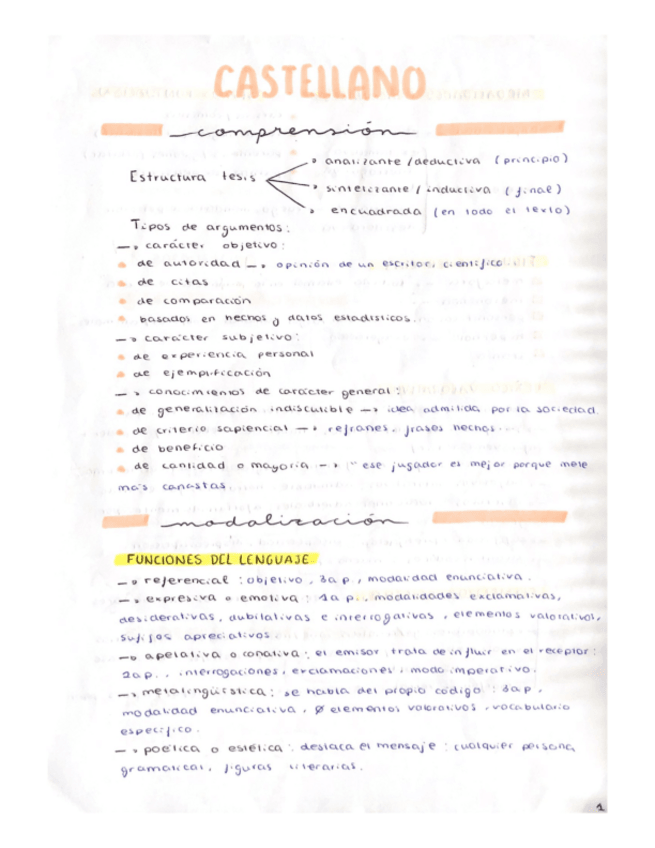 CASTELLANO
comprensión
analizante / deductiva (principio)
Estructura tesis
sintetizante / inductiva (final)
encuadrada (en todo el texto)
Tipos de argumentos:
→ carácter objetivo:
• de autoridad → opinión de un escritor, científico
• de citas
• de comparación
• basados en hechos y datos estadísticos.
→ carácter subjetivo:
• de experiencia personal
• de ejemplificación
→ conocimientos de carácter general:
• de generalización indiscutible → idea admitida por la sociedad.
• de criterio sapiencial → refranes, frases hechas.
• de beneficio
• de cantidad o mayoría → "ese jugador es mejor porque mete
más canastas.
modalización
FUNCIONES DEL LENGUAJE
→ referencial: objetivo, 3a p., modalidad enunciativa.
→ expresiva o emotiva: 1a p., modalidades exclamativas,
desiderativas, dubitativas e interrogativas, elementos valorativos,
sufijos apreciativos.
→ apelativa o conativa: el emisor trata de influir en el receptor:
2a p., interrogaciones, exclamaciones, modo imperativo.
→ metalingüística: se habla del propio código: 3a p.,
modalidad enunciativa, Ø elementos valorativos, vocabulario
específico.
→ poética o estética: destaca el mensaje: cualquier persona
gramatical, figuras literarias.
1